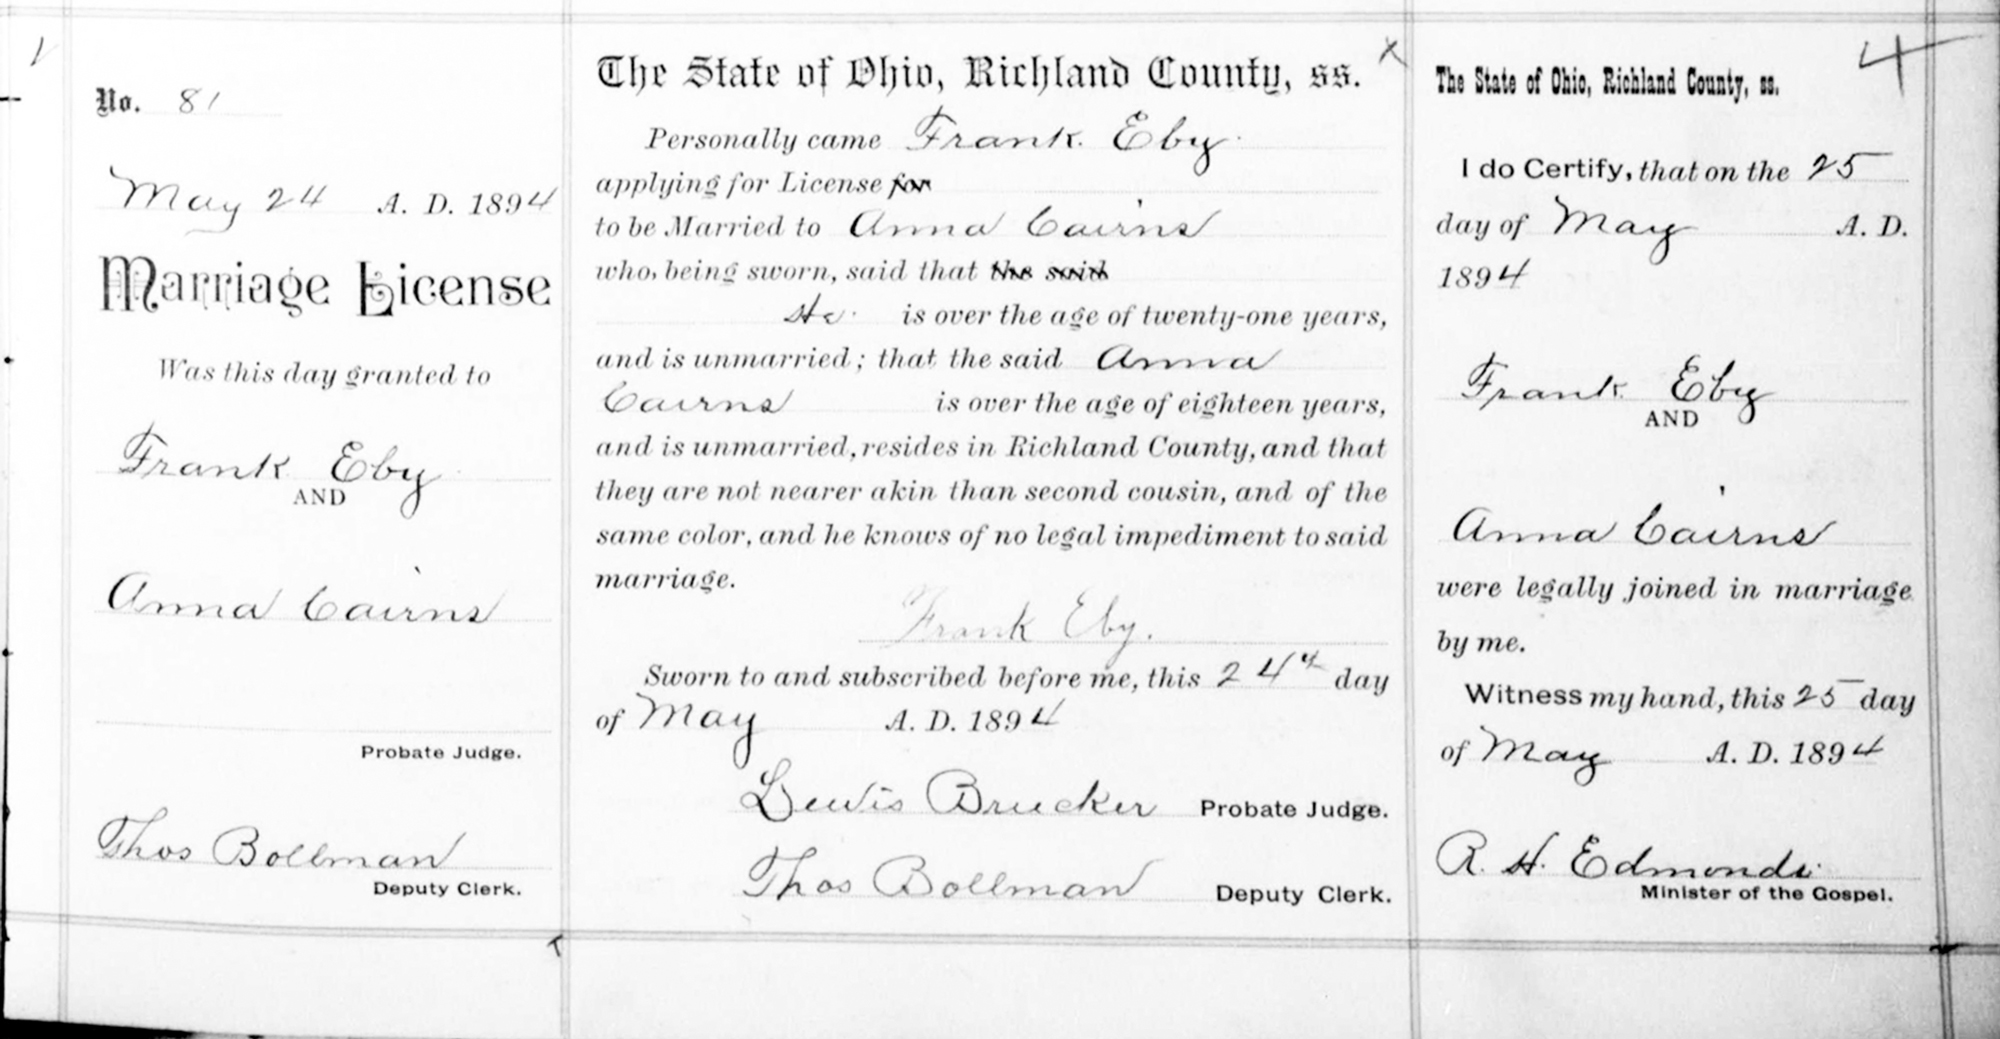 No. 81
May 24 A. D. 1894
Marriage License
Was this day granted to
Frank Eby
AND
Anna Cairns
Probate Judge.
Thos Bollman
Deputy Clerk.
The State of Ohio, Richland County, ss.
Personally came Frank Eby
applying for License for
to be Married to Anna Cairns
who, being sworn, said that the said
He is over the age of twenty-one years,
and is unmarried; that the said Anna
Cairns is over the age of eighteen years,
and is unmarried, resides in Richland County, and that
they are not nearer akin than second cousin, and of the
same color, and he knows of no legal impediment to said
marriage.
Frank Eby.
Sworn to and subscribed before me, this 24th day
of May A. D. 1894
Lewis Brucker Probate Judge.
Thos Bollman Deputy Clerk.
4
The State of Ohio, Richland County, ss.
I do Certify, that on the 25
day of May A. D.
1894
Frank Eby
AND
Anna Cairns
were legally joined in marriage
by me.
Witness my hand, this 25 day
of May A. D. 1894
R. H. Edmonds
Minister of the Gospel.